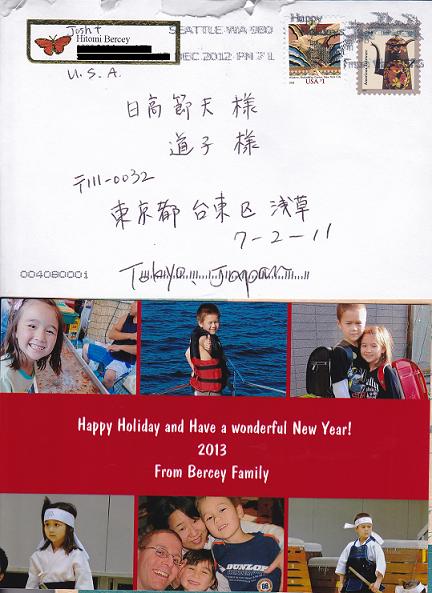 Josh +
Hitomi Bercey
U.S.A.
SEATTLE WA 980
DEC 2012 PM 7 L
Happy
USA $1
日高節夫 様
道子 様
〒111-0032
東京都 台東区 浅草
7-2-11
Tokyo, Japan
004080001
Happy Holiday and Have a wonderful New Year!
2013
From Bercey Family
DUNLOP